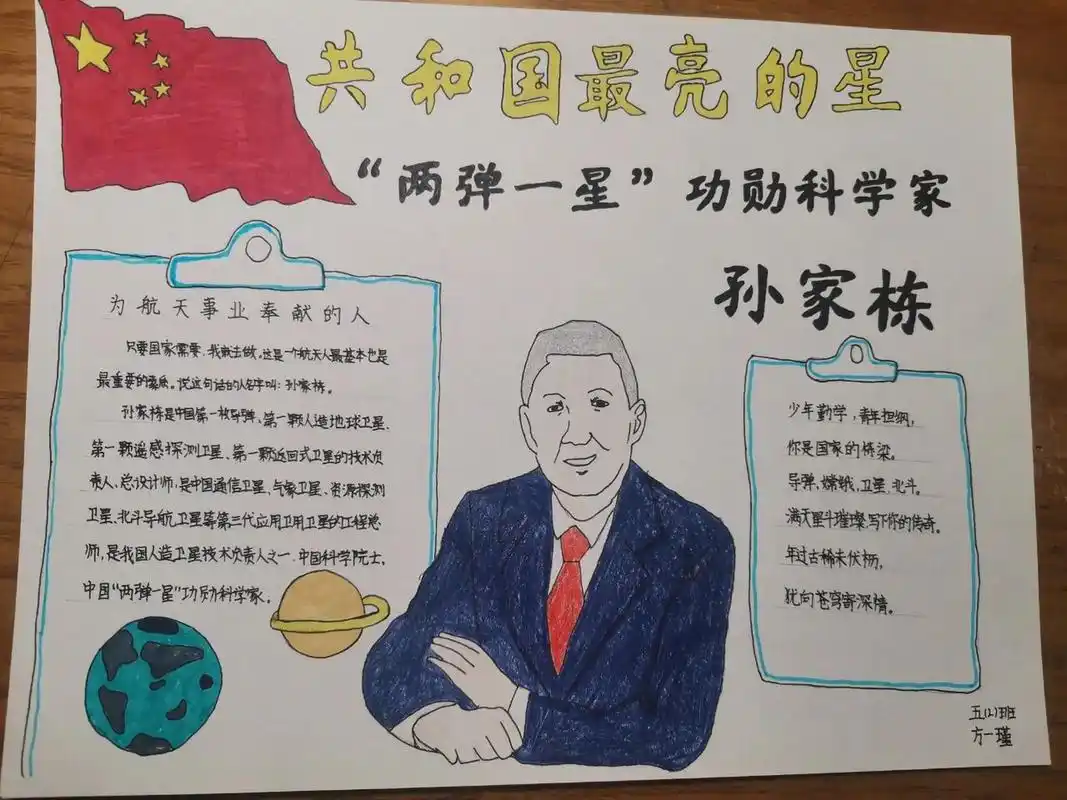 共和国最亮的星
“两弹一星”功勋科学家
孙家栋
为航天事业奉献的人
只要国家需要，我就去做。这是一个航天人最基本也是
最重要的素质。说这句话的人名字叫：孙家栋。
孙家栋是中国第一枚导弹、第一颗人造地球卫星、
第一颗遥感探测卫星、第一颗返回式卫星的技术负
责人、总设计师，是中国通信卫星、气象卫星、资源探测
卫星、北斗导航卫星等第三代应用卫用卫星的工程总
师，是我国人造卫星技术负责人之一，中国科学院士，
中国“两弹一星”功勋科学家。
少年勤学，青年担纲，
你是国家的桥梁。
导弹、嫦娥、卫星、北斗。
满天星斗璀璨，写下你的传奇。
年过古稀未伏枥，
犹向苍穹寄深情。
五(2)班
方一瑾